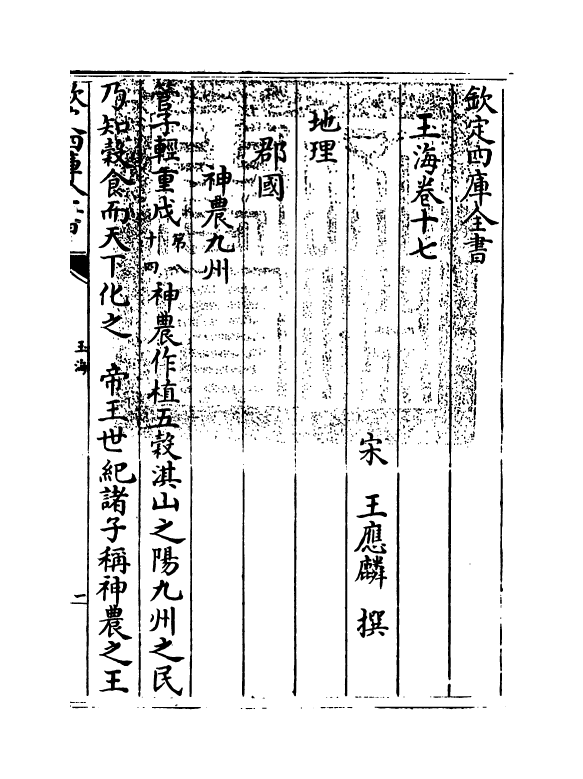 欽定四庫全書
玉海卷十七
宋 王應麟 撰
地理
郡國
神農九州
管子輕重戊第八十四神農作植五穀淇山之陽九州之民
乃知穀食而天下化之 帝王世紀諸子稱神農之王
欽定四庫全書
玉海